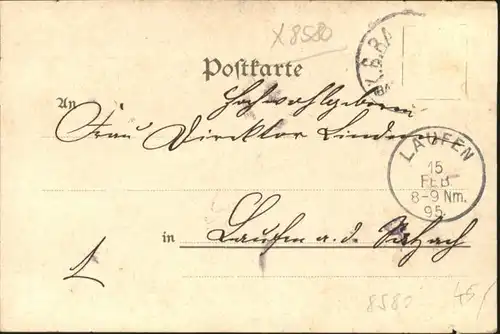 X 8580
K.B.BA
Postkarte
An Hochwohlgeboren
Frau Direktor Linden
LAUFEN
15
FEB.
8-9 Nm.
95.
in Laufen a. d. Salzach
1
8580
45/